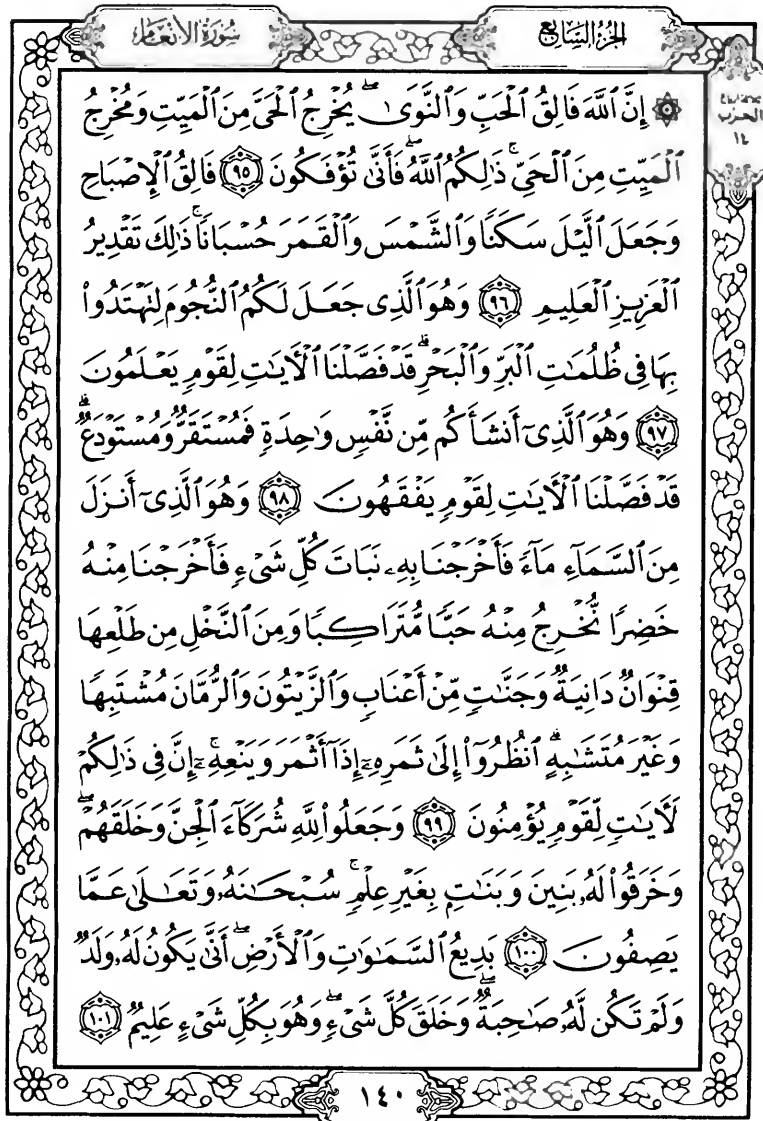 سُورَةُ الْأَنْعَامِ
الجُزْءُ السَّابِعُ
الحزب
١٤
۞ إِنَّ ٱللَّهَ فَالِقُ ٱلْحَبِّ وَٱلنَّوَىٰۖ يُخْرِجُ ٱلْحَىَّ مِنَ ٱلْمَيِّتِ وَمُخْرِجُ
ٱلْمَيِّتِ مِنَ ٱلْحَىِّۚ ذَٰلِكُمُ ٱللَّهُۖ فَأَنَّىٰ تُؤْفَكُونَ ٩٥ فَالِقُ ٱلْإِصْبَاحِ
وَجَعَلَ ٱلَّيْلَ سَكَنًا وَٱلشَّمْسَ وَٱلْقَمَرَ حُسْبَانًاۚ ذَٰلِكَ تَقْدِيرُ
ٱلْعَزِيزِ ٱلْعَلِيمِ ٩٦ وَهُوَ ٱلَّذِى جَعَلَ لَكُمُ ٱلنُّجُومَ لِتَهْتَدُوا۟
بِهَا فِى ظُلُمَٰتِ ٱلْبَرِّ وَٱلْبَحْرِۗ قَدْ فَصَّلْنَا ٱلْـَٔايَٰتِ لِقَوْمٍ يَعْلَمُونَ
٩٧ وَهُوَ ٱلَّذِىٓ أَنشَأَكُم مِّن نَّفْسٍ وَٰحِدَةٍ فَمُسْتَقَرٌّ وَمُسْتَوْدَعٌۗ
قَدْ فَصَّلْنَا ٱلْـَٔايَٰتِ لِقَوْمٍ يَفْقَهُونَ ٩٨ وَهُوَ ٱلَّذِىٓ أَنزَلَ
مِنَ ٱلسَّمَآءِ مَآءً فَأَخْرَجْنَا بِهِۦ نَبَاتَ كُلِّ شَىْءٍ فَأَخْرَجْنَا مِنْهُ
خَضِرًا نُّخْرِجُ مِنْهُ حَبًّا مُّتَرَاكِبًا وَمِنَ ٱلنَّخْلِ مِن طَلْعِهَا
قِنْوَانٌ دَانِيَةٌ وَجَنَّٰتٍ مِّنْ أَعْنَابٍ وَٱلزَّيْتُونَ وَٱلرُّمَّانَ مُشْتَبِهًا
وَغَيْرَ مُتَشَٰبِهٍۗ ٱنظُرُوٓا۟ إِلَىٰ ثَمَرِهِۦٓ إِذَآ أَثْمَرَ وَيَنْعِهِۦٓۚ إِنَّ فِى ذَٰلِكُمْ
لَـَٔايَٰتٍ لِّقَوْمٍ يُؤْمِنُونَ ٩٩ وَجَعَلُوا۟ لِلَّهِ شُرَكَآءَ ٱلْجِنَّ وَخَلَقَهُمْۖ
وَخَرَقُوا۟ لَهُۥ بَنِينَ وَبَنَٰتٍۭ بِغَيْرِ عِلْمٍۚ سُبْحَٰنَهُۥ وَتَعَٰلَىٰ عَمَّا
يَصِفُونَ ١٠٠ بَدِيعُ ٱلسَّمَٰوَٰتِ وَٱلْأَرْضِۖ أَنَّىٰ يَكُونُ لَهُۥ وَلَدٌ
وَلَمْ تَكُن لَّهُۥ صَٰحِبَةٌۖ وَخَلَقَ كُلَّ شَىْءٍۖ وَهُوَ بِكُلِّ شَىْءٍ عَلِيمٌ ١٠١
١٤٠